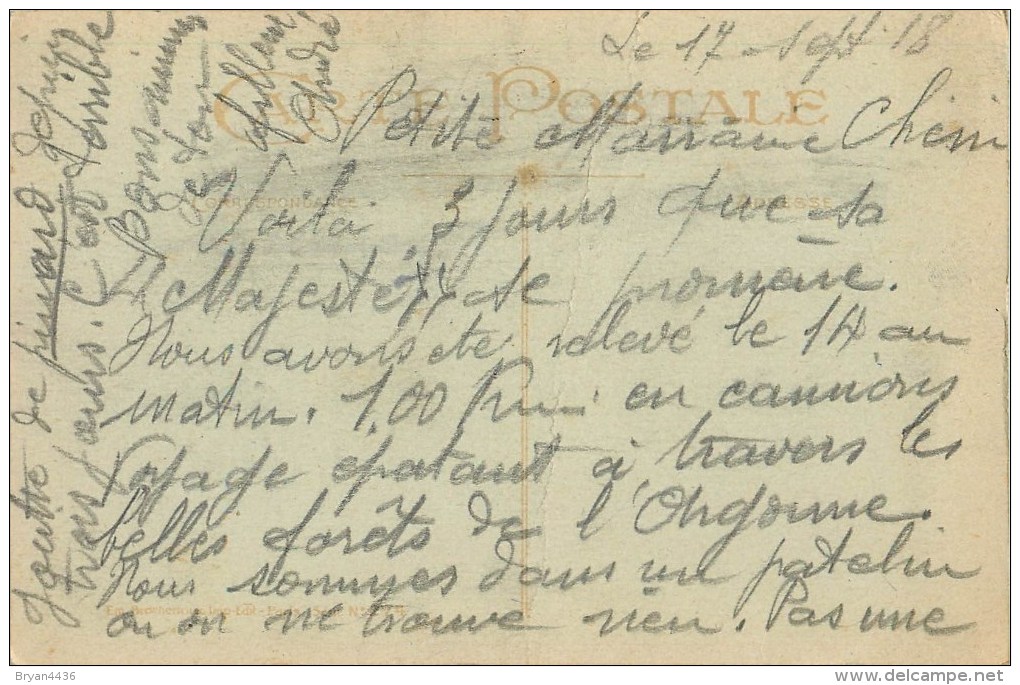 Le 17 - Sept 18
CARTE POSTALE
Petite Marraine Cherri
CORRESPONDANCE
ADRESSE
Voilà 3 jours que sa
Majesté se promene.
Nous avons ete relevé le 14 au
matin. 100 Km en camions
Voyage epatant à travers les
belles forêts de l'Argonne.
Nous sommes dans un patelin
ou on ne trouve rien. Pas une
goutte de pinard depuis
trois jours. C'est terrible
Bons
de ton filleul
André
Bryan4436
delcampe.net